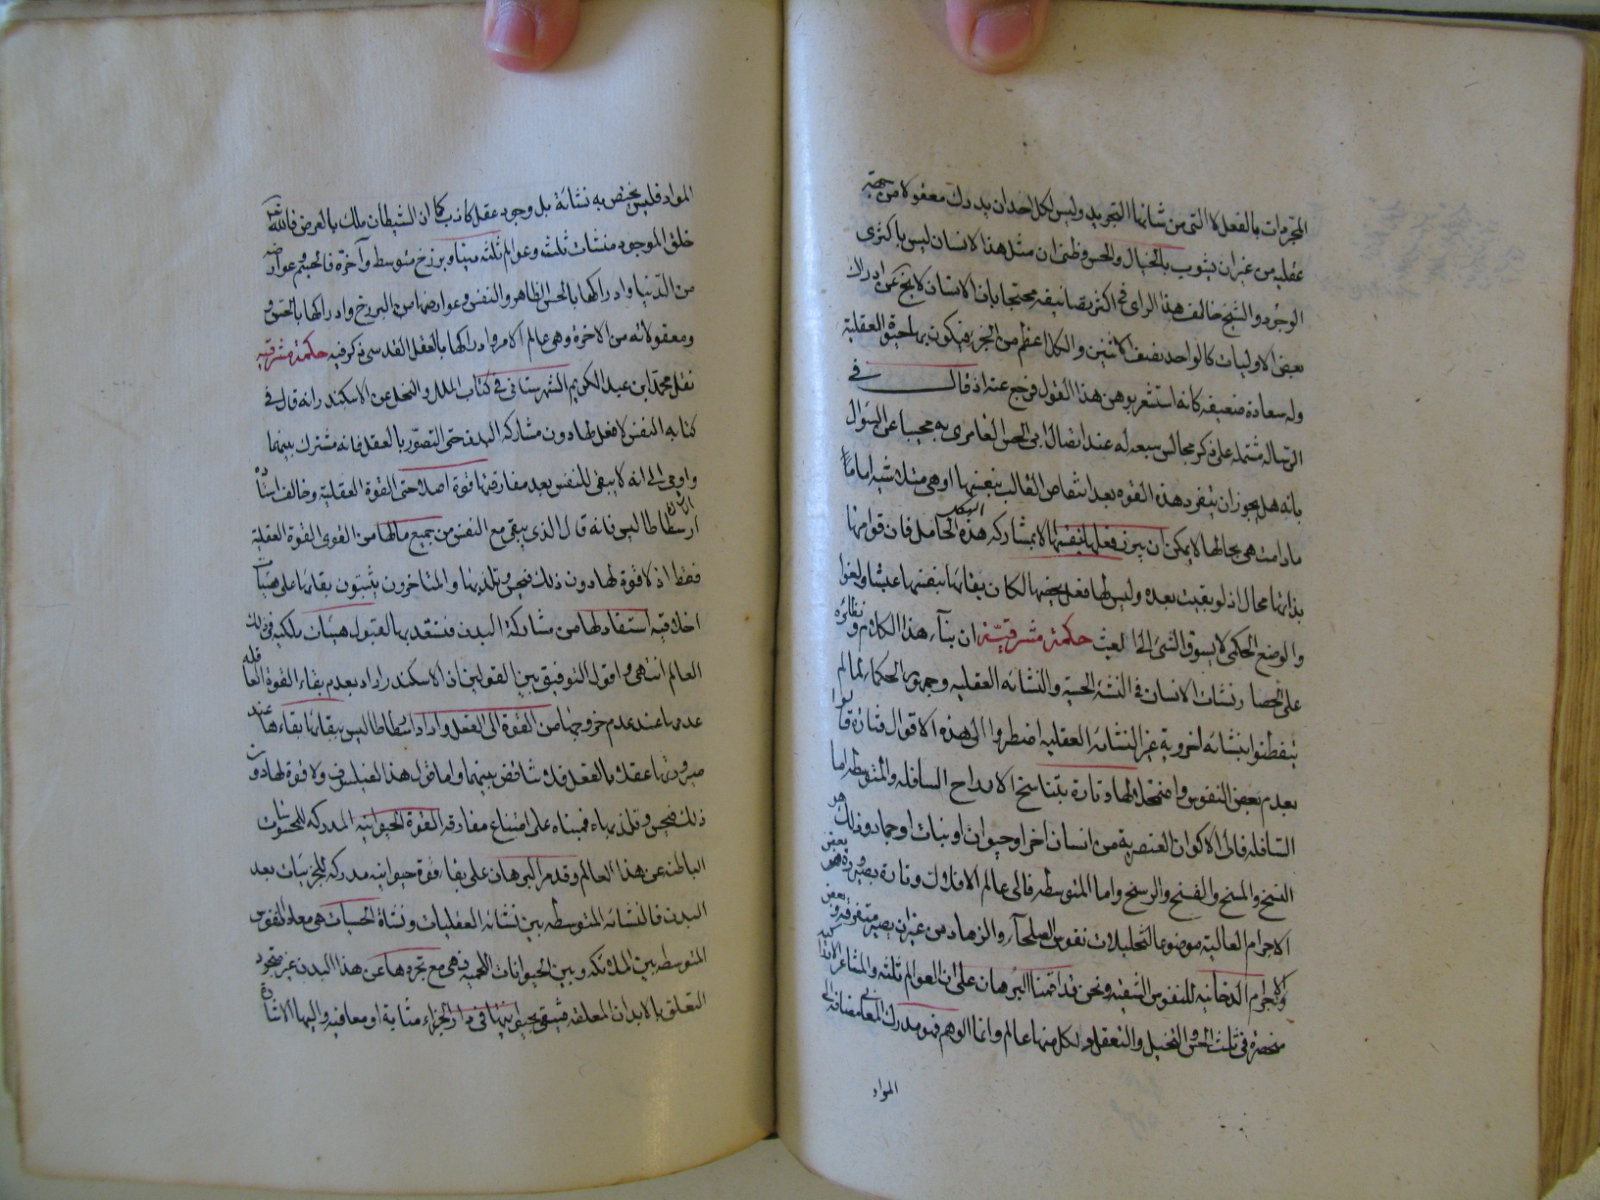 المجردات بالفعل لا التى من شانها التجريد وليس لكل احد ان يدرك معقولا من جهة
عقليه من غير ان يشوب بالخيال والحس وظنى ان مثل هذا الانسان ليس باكثرى
الوجود والشيخ خالف هذا الراى فى اكثر تصانيفه محتجا بان الانسان لا ينج عن ادراك
بعض الاوليات كالواحد نصف الاثنين والكل اعظم من الجزء فيكون بها حيوة العقلية
وله سعادة ضعيفه كانه استشعر بوهن هذا القول فرجع عنه اذ قال فى
الرساله مشتمله على ذكر مجالس سبعه له عند اتصال ابى الحسن العامرى به مجيبا عن السؤال
بانه هل يجوز ان ينفرد هذه القوه بعد انتقاص القالب بنفسها او هى مثل شبه اما ما
مادامت هى بحالها لا يمكن ان يبرز فعلها بنفسها الا بمشاركه هذه الهيكل الحامل فان قوامها
بذاتها محال اذ لو بقيت بعده وليس لها فعل يخصها لكان بقاءها بنفسها عبثا ولغوا
والوضع الحكمى لا يسوق الشئ الى العبث حكمة مشرقيّة ان بناء هذا الكلام ونظائره
على انحصار نشات الانسان فى النشئة الحسية والنشاه العقليه وجمهور الحكماء لما لم
يتفطنوا بنشاه اخروية غير النشاه العقليه اضطروا الى هذه الاقوال فتارة قالوا
بعدم بعض النفوس واضمحلالها وتارة بتناسخ الارواح السافله والمتوسطه اما
السافله فالى الاكوان العنصرية من انسان اخر او حيوان او نبات او جماد وذلك هو
النسخ والمسخ والفسخ والرسخ واما المتوسطه فالى عالم الافلاك وتارة بصيرورة بعض
الاجرام العاليه موضوعا لتخيلات نفوس الصلحاء والزهاد من غير ان يصير متصرفه وبعض
الاجرام الدخانيه للنفوس الشقيه ونحن قد اقمنا البرهان على ان العوالم ثلثه والمشاعر الادراكيه
منحصرة فى ثلث الحس والتخيل والتعقل ولكل منها عالم وانما الوهم فهو مدرك المعانى مضافه الى
المواد
المواد فليس يختص به نشاة بل وجود عقل كاذب كما ان الشيطان ملك بالعرض فالله تعالى
خلق الموجود منشات ثلثه وعوالم ثلثه دنيا وبرزخ متوسط وآخرة فالجسم وعوارضه
من الدنيا وادراكها بالحس الظاهر والنفس وعوارضها من البرزخ وادراكها بالحس
ومعقولاته من الاخرة وهى عالم الامر وادراكها بالعقل القدسى ذكر فيه حكمة مشرقيه
نقل محمد ابن عبد الكريم الشهرستانى فى كتاب الملل والنحل عن الاسكندر انه قال فى
كتابه النفس لا فعل لها دون مشاركه البدن حتى التصور بالعقل فانه مشترك بينهما
واومى الى انه لا يبقى للنفس بعد مفارقتها قوة اصلا حتى القوة العقلية وخالف استاده
ارسطاطاليس فانه قال الذى يبقى مع النفس من جميع مالها من القوى القوة العقلية
فقط اذ لا قوة لها دون ذلك فتحس وتلذ بها والمتاخرون يثبتون بقاءها على هيئات
اخلاقيه استفاد لها من مشاركة البدن فتستعد بها لقبول هيئات ملكيه فى ذلك
العالم انتهى واقول التوفيق بين القولين ان الاسكندر اراد بعدم بقاء القوة العاقله
عدمها عند عدم خروجها من القوة الى الفعل واراد ارسطاطاليس ببقائها بقاءها عند
صيرورتها عقلا بالفعل فلا تناقض بينهما واما قول هذا الفيلسوف ولا قوة لها دون
ذلك فتحس وتلذ بها فمبناه على امتناع مفارقه القوة الحيوانيه المدركه للمحسوسات
الباطنه عن هذا العالم وقد مر البرهان على بقاء قوة حيوانيه مدركه للجزئيات بعد
البدن فالنشاه المتوسطه بين نشاه العقليات ونشاة الحسيات هى معاد النفوس
المتوسطه بين الملائكه وبين الحيوانات اللحميه فهى مع تجردها عن هذا البدن غير مجرد
التعلق بالابدان المعلقه فتبقى بحيوانيتها فى دار الجزاء مثابة او معاقبه واليها الاشارة